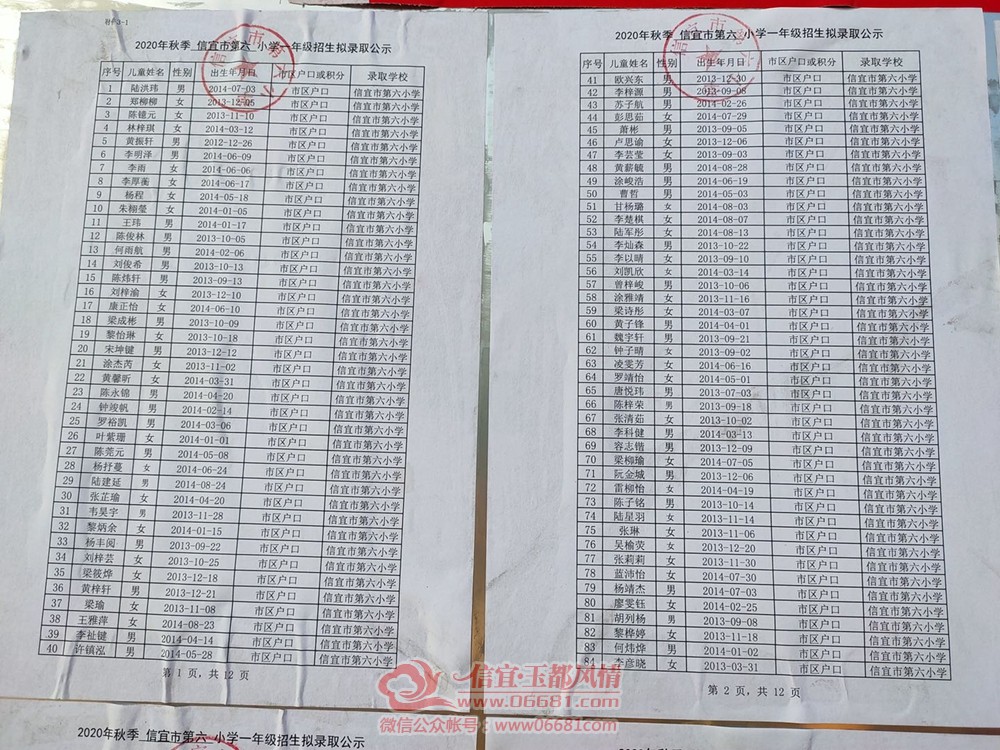 附件3-1
2020年秋季 信宜市第六 小学一年级招生拟录取公示
序号 儿童姓名 性别 出生年月日 市区户口或积分 录取学校
1 陆洪玮 男 2014-07-03 市区户口 信宜市第六小学
2 郑柳柳 女 2013-12-05 市区户口 信宜市第六小学
3 陈镱元 女 2013-11-10 市区户口 信宜市第六小学
4 林梓琪 女 2014-03-12 市区户口 信宜市第六小学
5 黄振轩 男 2012-12-26 市区户口 信宜市第六小学
6 李明泽 男 2014-06-09 市区户口 信宜市第六小学
7 李雨 女 2014-06-06 市区户口 信宜市第六小学
8 李厚蘅 女 2014-06-17 市区户口 信宜市第六小学
9 杨程 女 2014-05-18 市区户口 信宜市第六小学
10 朱栩莹 女 2014-01-05 市区户口 信宜市第六小学
11 王玮 男 2014-01-17 市区户口 信宜市第六小学
12 陈俊林 男 2013-10-05 市区户口 信宜市第六小学
13 何雨航 男 2014-02-06 市区户口 信宜市第六小学
14 刘俊希 男 2013-10-13 市区户口 信宜市第六小学
15 陈炜轩 男 2013-09-13 市区户口 信宜市第六小学
16 刘梓渝 女 2013-12-10 市区户口 信宜市第六小学
17 康正怡 女 2014-06-10 市区户口 信宜市第六小学
18 梁成彬 男 2013-10-09 市区户口 信宜市第六小学
19 黎怡琳 女 2013-10-18 市区户口 信宜市第六小学
20 宋坤键 男 2013-12-12 市区户口 信宜市第六小学
21 涂杰芮 女 2013-11-02 市区户口 信宜市第六小学
22 黄馨昕 女 2014-03-31 市区户口 信宜市第六小学
23 陈永锦 男 2014-04-20 市区户口 信宜市第六小学
24 钟竣帆 男 2014-02-14 市区户口 信宜市第六小学
25 罗裕凯 男 2014-03-06 市区户口 信宜市第六小学
26 叶紫珊 女 2014-01-01 市区户口 信宜市第六小学
27 陈莞元 男 2014-05-08 市区户口 信宜市第六小学
28 杨抒蔓 女 2014-06-24 市区户口 信宜市第六小学
29 陆建延 男 2014-08-24 市区户口 信宜市第六小学
30 张芷瑜 女 2014-04-20 市区户口 信宜市第六小学
31 韦昊宇 男 2013-11-28 市区户口 信宜市第六小学
32 黎炳余 女 2014-01-15 市区户口 信宜市第六小学
33 杨丰阅 男 2013-09-22 市区户口 信宜市第六小学
34 刘梓芸 女 2013-10-25 市区户口 信宜市第六小学
35 梁筱烨 女 2013-12-18 市区户口 信宜市第六小学
36 黄梓轩 男 2013-12-21 市区户口 信宜市第六小学
37 梁瑜 女 2013-11-08 市区户口 信宜市第六小学
38 王雅萍 女 2014-08-23 市区户口 信宜市第六小学
39 李祉键 男 2014-04-14 市区户口 信宜市第六小学
40 许镇泓 男 2014-05-28 市区户口 信宜市第六小学
第 1 页，共 12 页
2020年秋季 信宜市第六 小学一年级招生拟录取公示
序号 儿童姓名 性别 出生年月日 市区户口或积分 录取学校
41 欧兴东 男 2013-12-30 市区户口 信宜市第六小学
42 李梓源 男 2013-09-08 市区户口 信宜市第六小学
43 苏子航 男 2014-02-26 市区户口 信宜市第六小学
44 彭思茹 女 2014-07-29 市区户口 信宜市第六小学
45 萧彬 男 2013-09-05 市区户口 信宜市第六小学
46 卢思谕 女 2013-12-03 市区户口 信宜市第六小学
47 李芸莹 女 2013-09-03 市区户口 信宜市第六小学
48 黄薪毓 男 2014-08-28 市区户口 信宜市第六小学
49 涂峻浩 男 2014-06-19 市区户口 信宜市第六小学
50 曹哲 男 2014-05-03 市区户口 信宜市第六小学
51 甘杨璐 女 2014-08-03 市区户口 信宜市第六小学
52 李楚棋 女 2014-08-07 市区户口 信宜市第六小学
53 陆军彤 女 2014-08-13 市区户口 信宜市第六小学
54 李灿森 男 2013-10-22 市区户口 信宜市第六小学
55 李以晴 女 2013-09-10 市区户口 信宜市第六小学
56 刘凯欣 女 2014-03-14 市区户口 信宜市第六小学
57 曾梓峻 男 2013-10-06 市区户口 信宜市第六小学
58 涂雅靖 女 2013-11-16 市区户口 信宜市第六小学
59 梁诗彤 女 2014-03-07 市区户口 信宜市第六小学
60 黄子锋 男 2014-04-01 市区户口 信宜市第六小学
61 魏宇轩 男 2013-09-21 市区户口 信宜市第六小学
62 钟子晴 女 2013-09-02 市区户口 信宜市第六小学
63 凌雯芳 女 2014-06-16 市区户口 信宜市第六小学
64 罗靖怡 女 2014-05-01 市区户口 信宜市第六小学
65 唐悦玮 男 2013-07-03 市区户口 信宜市第六小学
66 陈梓荣 男 2013-09-18 市区户口 信宜市第六小学
67 张清茹 女 2013-10-02 市区户口 信宜市第六小学
68 李科健 男 2014-03-13 市区户口 信宜市第六小学
69 容志锴 男 2013-12-09 市区户口 信宜市第六小学
70 梁柳瑜 女 2014-07-05 市区户口 信宜市第六小学
71 阮金城 男 2013-12-06 市区户口 信宜市第六小学
72 雷柳怡 女 2014-04-19 市区户口 信宜市第六小学
73 陈子铭 男 2013-10-14 市区户口 信宜市第六小学
74 陆星羽 女 2013-11-14 市区户口 信宜市第六小学
75 张琳 女 2013-11-06 市区户口 信宜市第六小学
76 吴榆荧 女 2013-12-20 市区户口 信宜市第六小学
77 张莉莉 女 2013-11-30 市区户口 信宜市第六小学
78 蓝沛怡 女 2014-07-30 市区户口 信宜市第六小学
79 杨靖杰 男 2013-07-30 市区户口 信宜市第六小学
80 廖雯钰 女 2014-02-25 市区户口 信宜市第六小学
81 胡列杨 男 2013-09-08 市区户口 信宜市第六小学
82 黎桦婷 女 2013-11-18 市区户口 信宜市第六小学
83 何炜烨 男 2014-01-02 市区户口 信宜市第六小学
84 李彦晓 女 2013-03-31 市区户口 信宜市第六小学
第 2 页，共 12 页
信宜·玉都风情
www.06681.com
微信公众帐号：www06681com
2020年秋季 信宜市第六 小学一年级招生拟录取公示